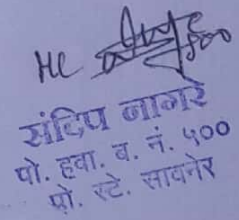 HC
संदिप नागरे
पो. हवा. ब. नं. ५००
पो. स्टे. सावनेर